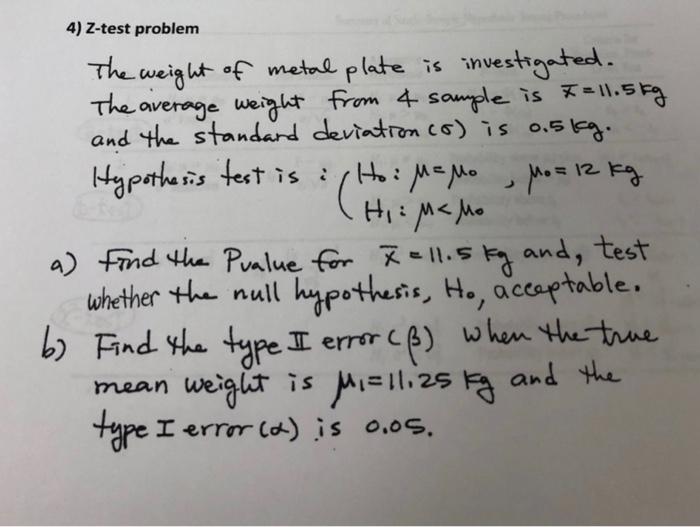 4) Z-test problem
The weight of metal plate is investigated.
The average weight from 4 sample is x̄ = 11.5 kg
and the standard deviation (σ) is 0.5 kg.
Hypothesis test is : ( H₀ : μ = μ₀ , μ₀ = 12 kg
H₁ : μ < μ₀
a) Find the Pvalue for x̄ = 11.5 kg and, test
whether the null hypothesis, H₀, acceptable.
b) Find the type II error (β) when the true
mean weight is μ₁ = 11.25 kg and the
type I error (α) is 0.05.